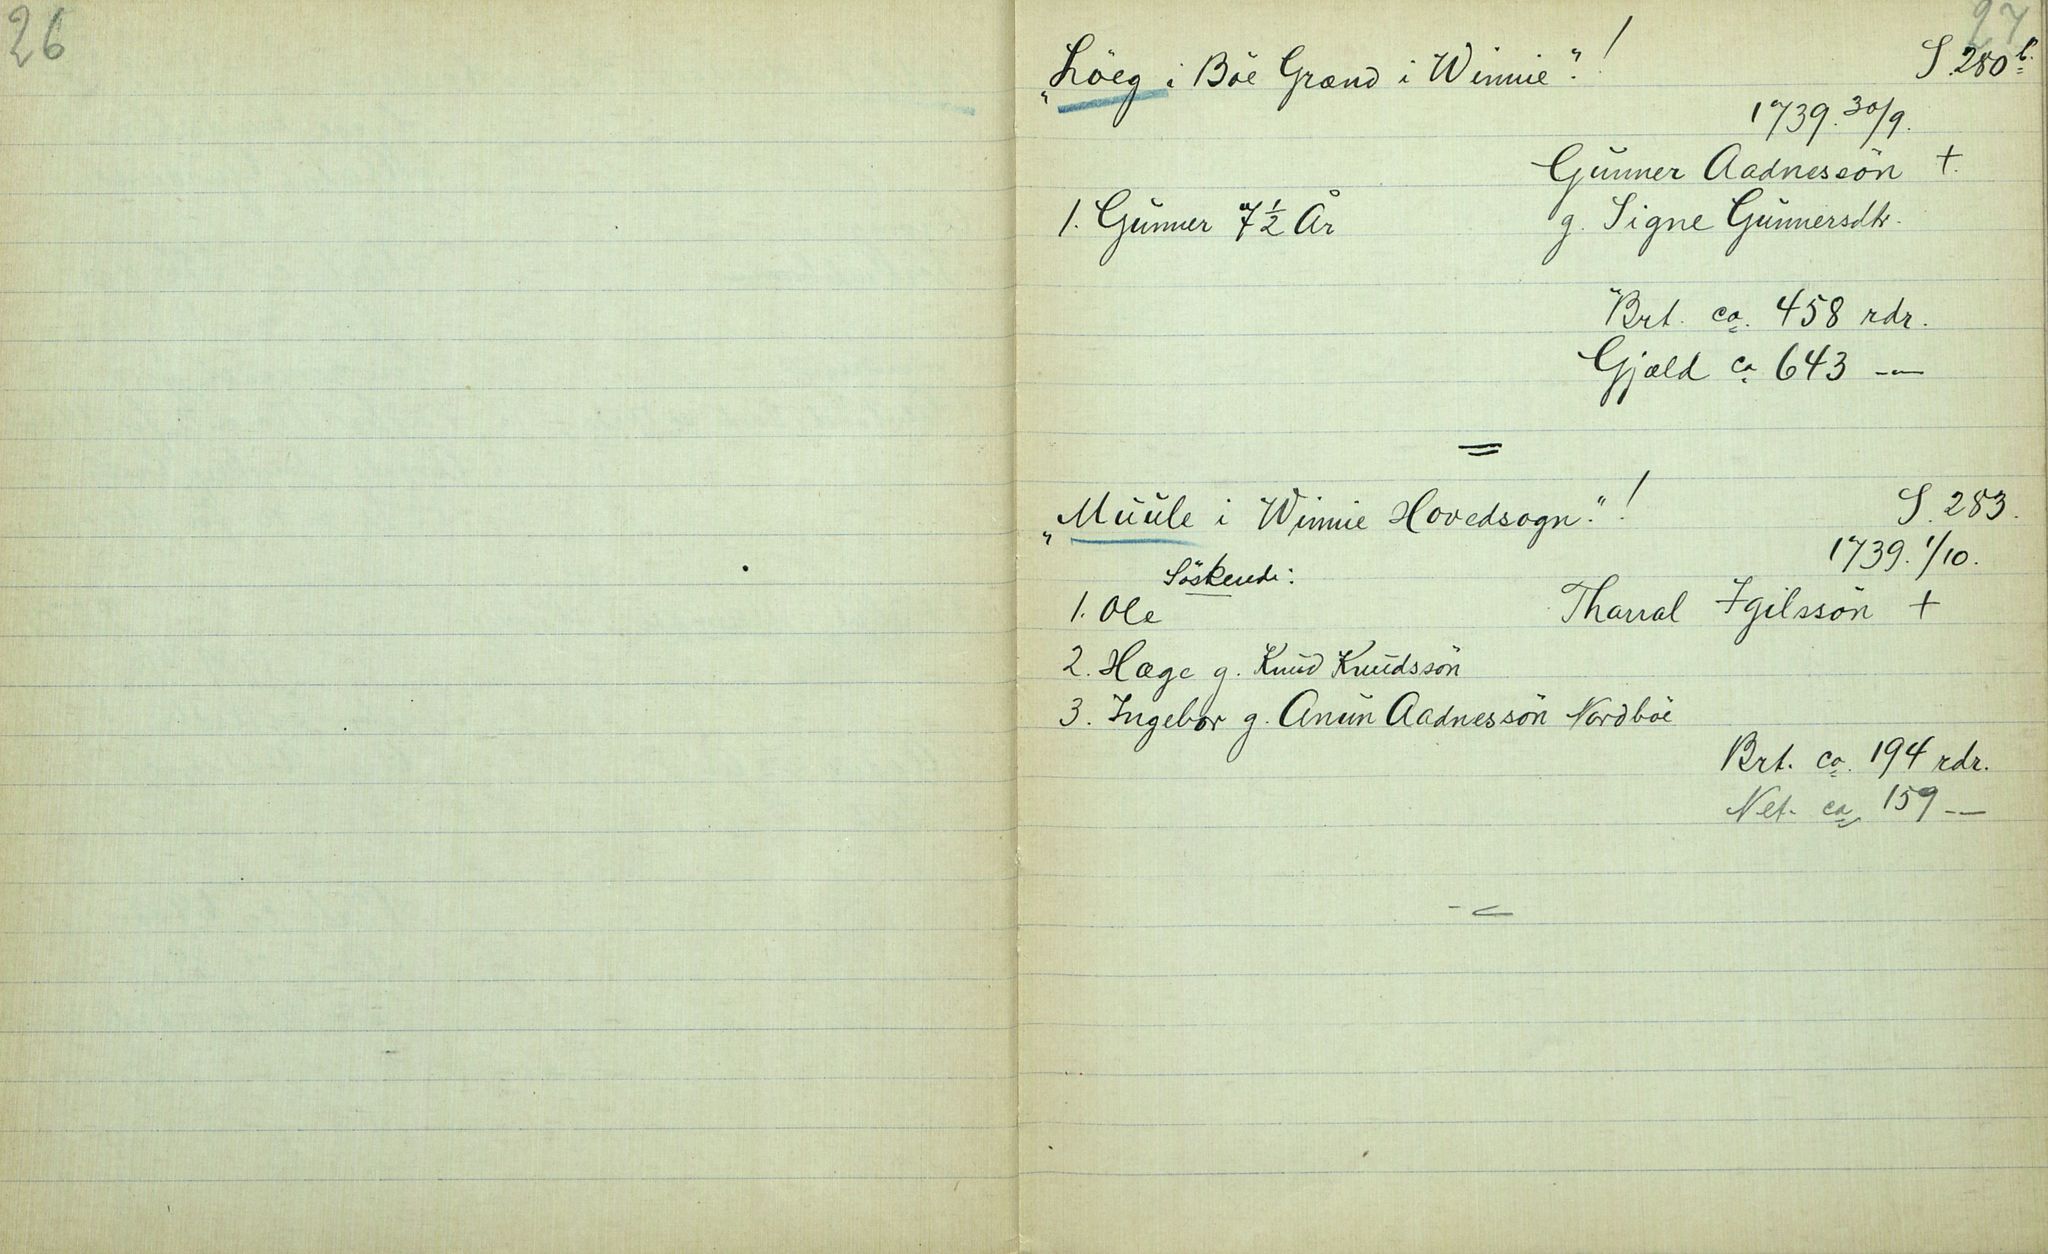 26
27
„Löeg i Böe Grænd i Winnie“! S. 280 b.
1739. 30/9.
Gunner Aadnessön +.
1. Gunner 7 1/2 År g. Signe Gunnersdtr.
Brt. ca. 458 rdr.
Gjæld ca 643 —
„Muule i Winnie Hovedsogn.“! S. 283.
1739. 1/10.
Söskende:
1. Ole Tharral Igilssön +
2. Hæge g. Knud Knudssön
3. Ingebor g. Anun Aadnessön Nordböe
Brt. ca. 194 rdr.
Net. ca. 159 —